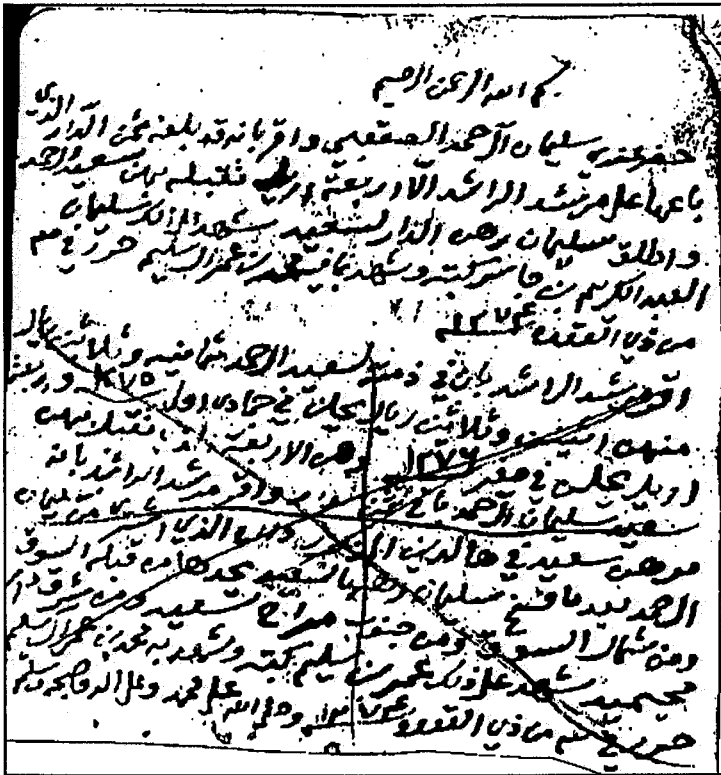 بسم الله الرحمن الرحيم
حضر عندي سليمان آل حمد الصقعبي واقر بانه قد بلغه ثمن الدار الذي
باعها على مرشد الراشد الا اربعة اريل تقبله بهن سعيد الحمد
واطلق سليمان رهن الدار لسعيد شهد الى ذلك سليمان
العبد الكريم بن جاسر كتبه وشهد بما فيه محمد بن عمر السليم حرر في
من ذي القعده ١٣٧٤
اقر مرشد الراشد بان في ذمته لسعيد الحمد ثمانيه وثلاثين ريال
منهن اثنين وثلاثين ريال يحلن في جمادى اول ١٣٧٥ واربعة
اريل يحلن في صفر ١٣٧٦ وهن الاربعة تقبله بهن
سعيد سليمان الحمد واقر مرشد الراشد بانه
مرهن سعيد في هالدين الذي من سليمان
الحمد بعد ما فسخ سليمان رهنها لسعيد يحدها من قبله السوق
ومن شمال السوق ومن جنوب لسعيد ومن شرق
محيميد شهد على ذلك عمر بن سليم كتبه وشهد به محمد بن عمر السليم
حرر في من ذي القعده ١٣٧٤ وصلى الله على محمد وعلى اله وصحبه وسلم